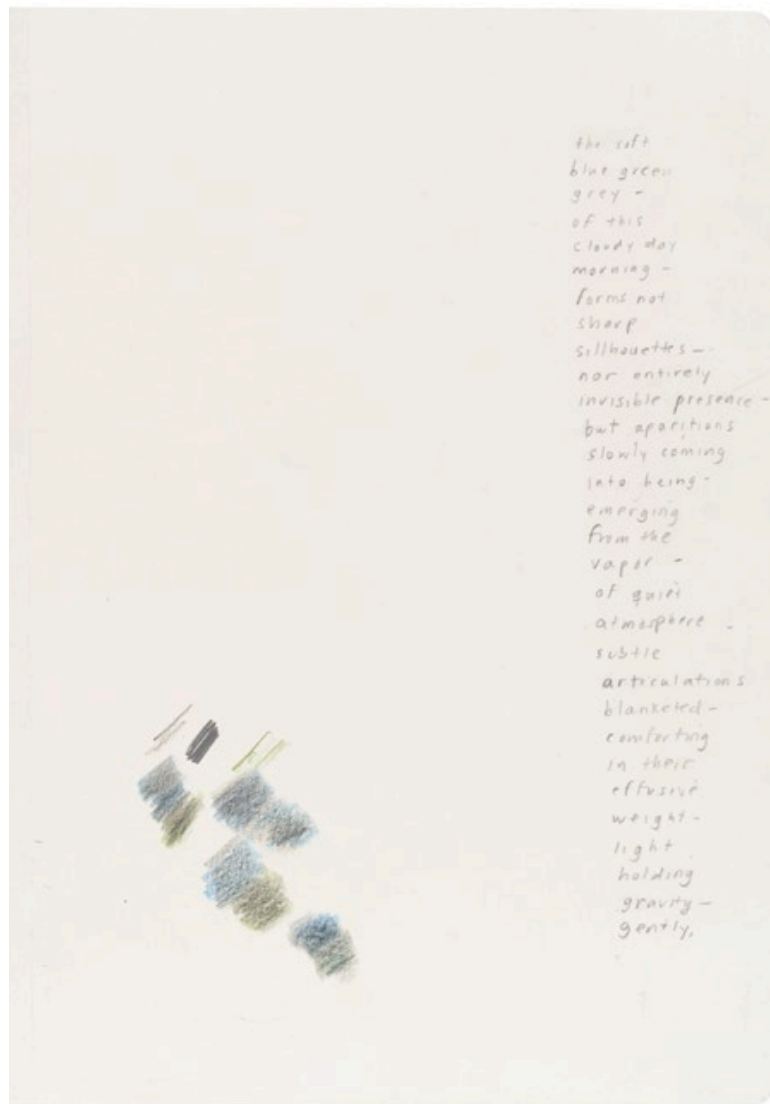 the soft
blue green
grey –
of this
cloudy day
morning –
forms not
sharp
sillhouettes –
nor entirely
invisible presence –
but aparitions
slowly coming
into being –
emerging
from the
vapor –
of quiet
atmosphere –
subtle
articulations
blanketed –
comforting
in their
effusive
weight –
light
holding
gravity –
gently,